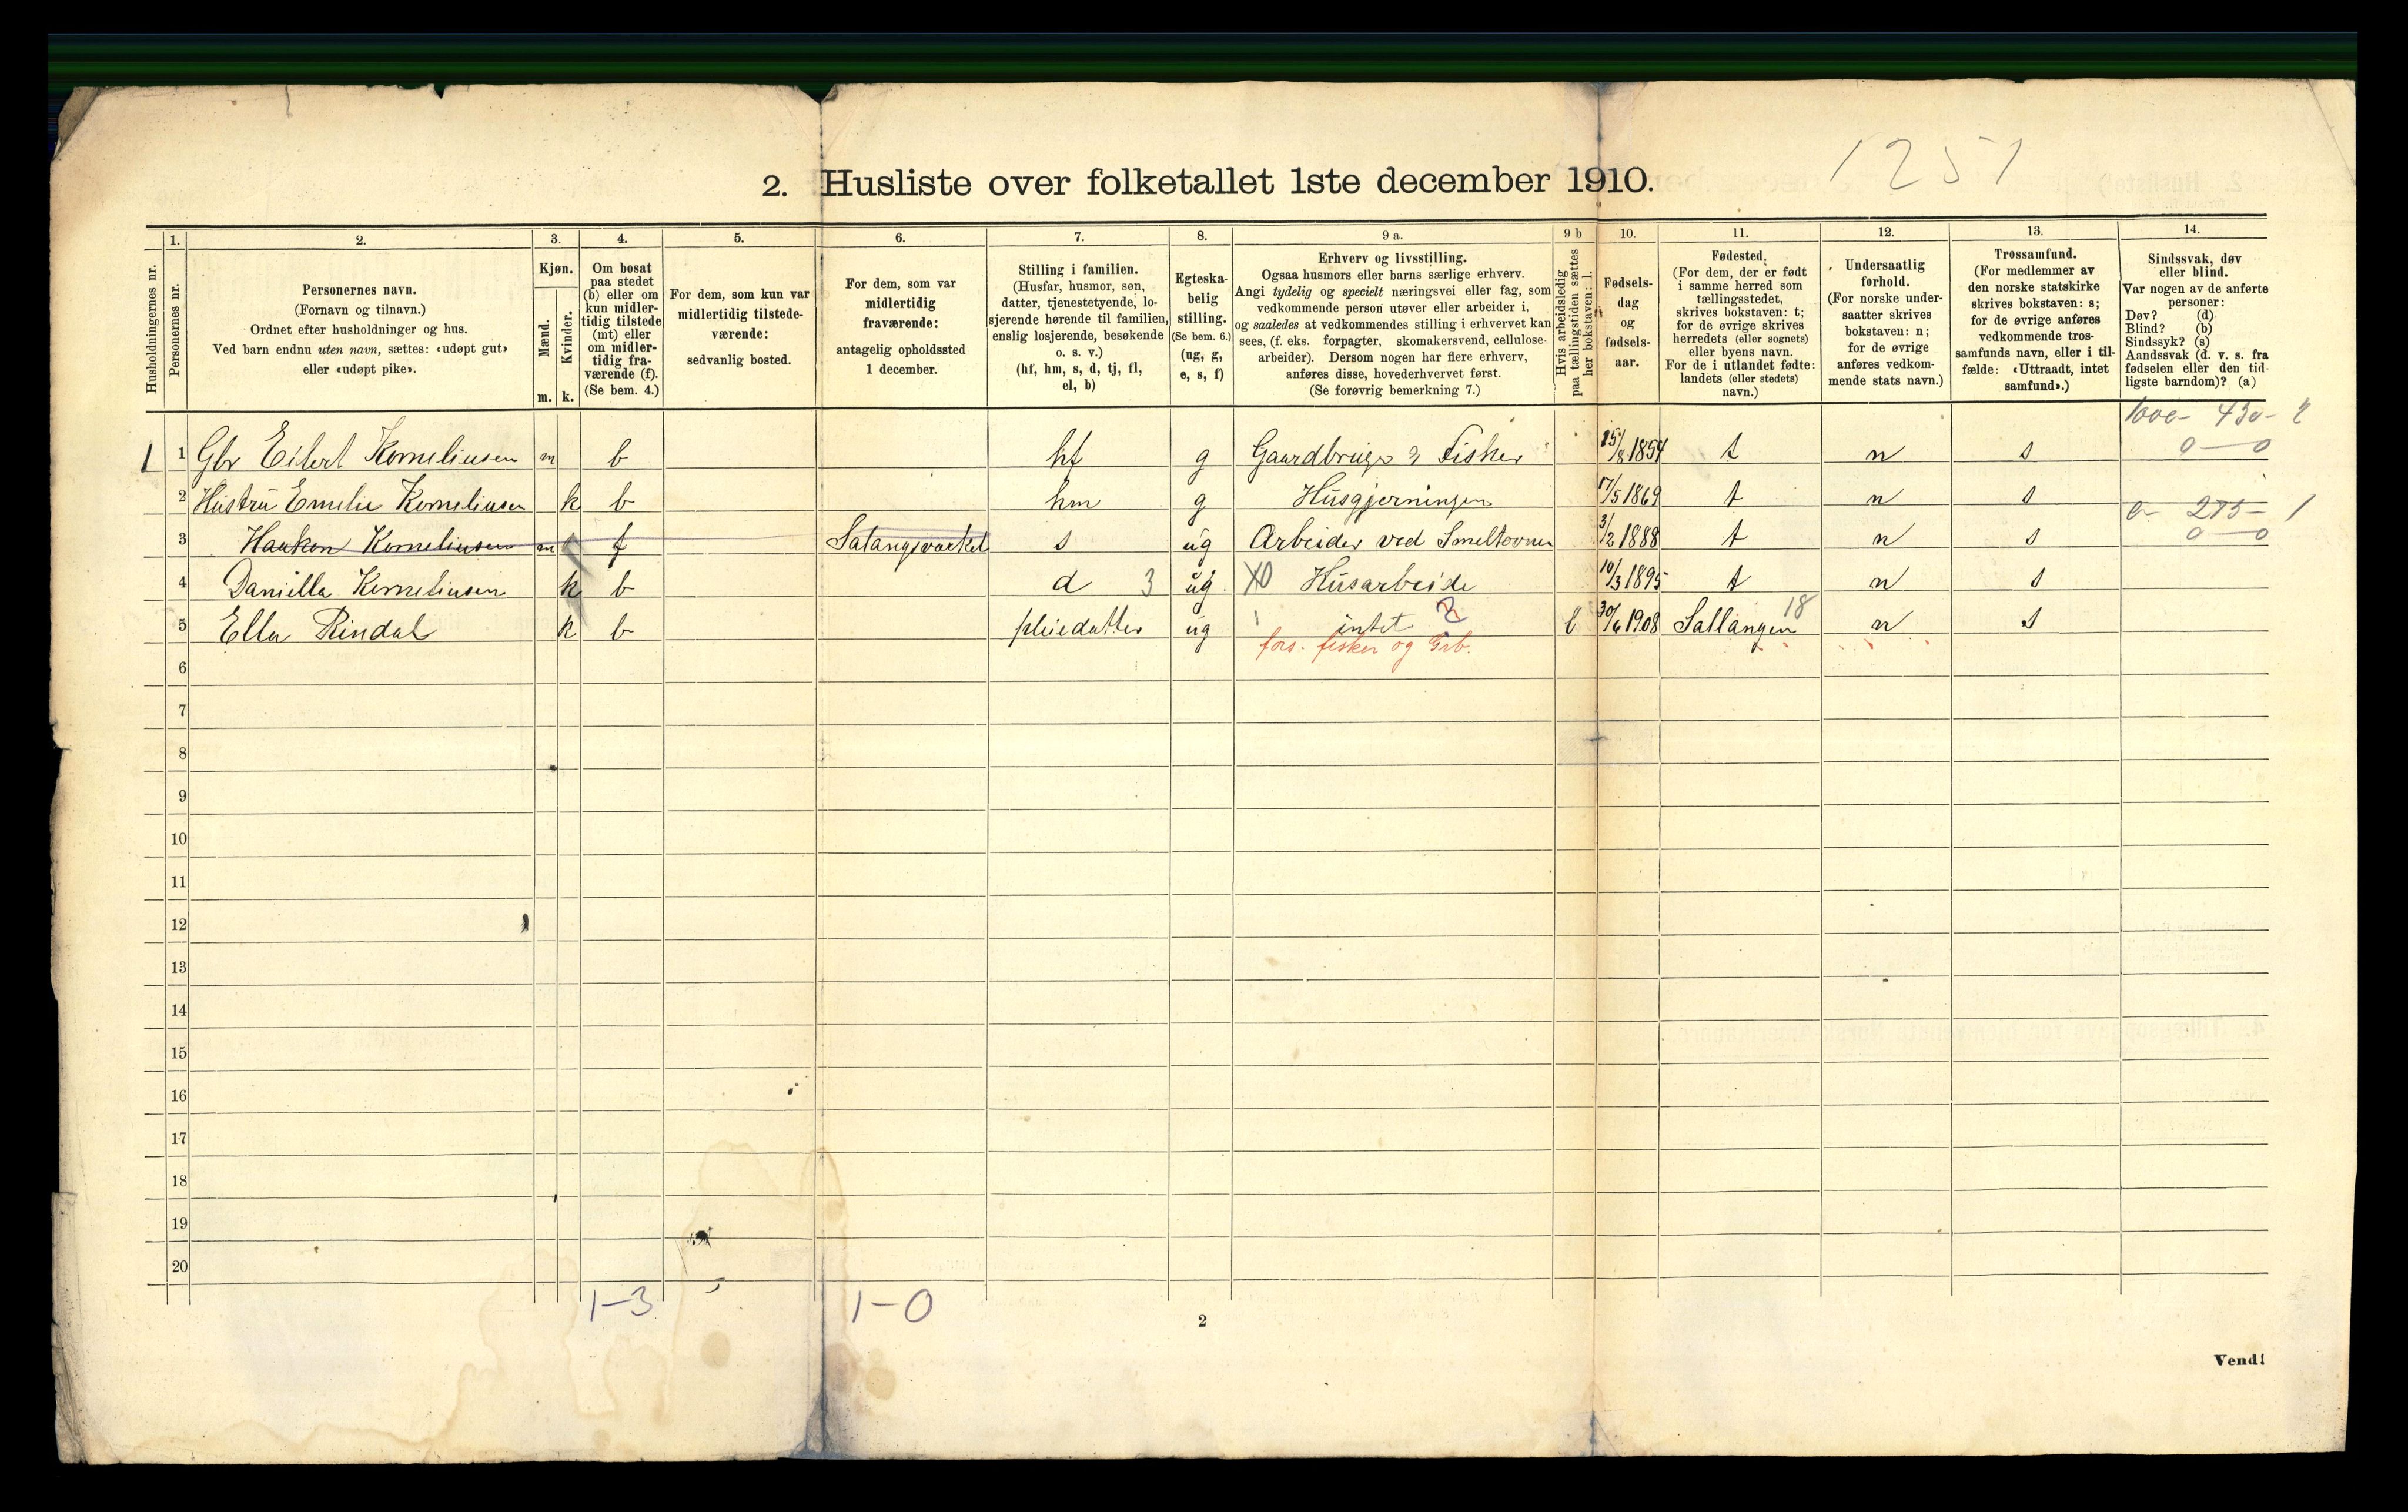 1251
2. Husliste over folketallet 1ste december 1910.
Husholdningernes nr.
1.
Personernes nr.
2.
Personernes navn.
(Fornavn og tilnavn.)
Ordnet efter husholdninger og hus.
Ved barn endnu uten navn, sættes: «udøpt gut»
eller «udøpt pike».
3.
Kjøn.
Mænd.
Kvinder.
m.
k.
4.
Om bosat
paa stedet
(b) eller om
kun midler-
tidig tilstede
(mt) eller
om midler-
tidig fra-
værende (f).
(Se bem. 4.)
5.
For dem, som kun var
midlertidig tilstede-
værende:
sedvanlig bosted.
6.
For dem, som var
midlertidig
fraværende:
antagelig opholdssted
1 december.
7.
Stilling i familien.
(Husfar, husmor, søn,
datter, tjenestetyende, lo-
sjerende hørende til familien,
enslig losjerende, besøkende
o. s. v.)
(hf, hm, s, d, tj, fl,
el, b)
8.
Egteska-
belig
stilling.
(Se bem. 6.)
(ug, g,
e, s, f)
9 a.
Erhverv og livsstilling.
Ogsaa husmors eller barns særlige erhverv.
Angi tydelig og specielt næringsvei eller fag, som
vedkommende person utøver eller arbeider i,
og saaledes at vedkommendes stilling i erhvervet kan
sees, (f. eks. forpagter, skomakersvend, cellulose-
arbeider). Dersom nogen har flere erhverv,
anføres disse, hovederhvervet først.
(Se forøvrig bemerkning 7.)
9 b
Hvis arbeidsledig
paa tællingstiden sættes
her bokstaven: l.
10.
Fødsels-
dag
og
fødsels-
aar.
11.
Fødested.
(For dem, der er født
i samme herred som
tællingsstedet,
skrives bokstaven: t;
for de øvrige skrives
herredets (eller sognets)
eller byens navn.
For de i utlandet fødte:
landets (eller stedets)
navn.)
12.
Undersaatlig
forhold.
(For norske under-
saatter skrives
bokstaven: n;
for de øvrige
anføres vedkom-
mende stats navn.)
13.
Trossamfund.
(For medlemmer av
den norske statskirke
skrives bokstaven: s;
for de øvrige anføres
vedkommende tros-
samfunds navn, eller i til-
fælde: «Uttraadt, intet
samfund».)
14.
Sindssvak, døv
eller blind.
Var nogen av de anførte
personer:
Døv? (d)
Blind? (b)
Sindssyk? (s)
Aandssvak (d. v. s. fra
fødselen eller den tid-
ligste barndom)? (a)
1 1 Gbr Eilert Korneliusen m b hf g Gaardbruger & Fisker 15/8 1854 t n s 0—0
2 Hustru Emelie Korneliusen k b hm g Husgjerningen 17/5 1869 t n s
275- 1
3 Haakon Korneliusen m f Salangsværket s ug Arbeider ved Smelteovnen 3/2 1888 t n s 0—0
4 Daniella Korneliusen k b d 3 ug X0 Husarbeide 10/3 1895 t n s
5 Ella Rindal k b pleiedatter ug intet 2 l 30/6 1908 Sallangen 18 n s
fors. fisker og Grb.
6
7
8
9
10
11
12
13
14
15
16
17
18
19
20
1-3 1-0
2
Vend!